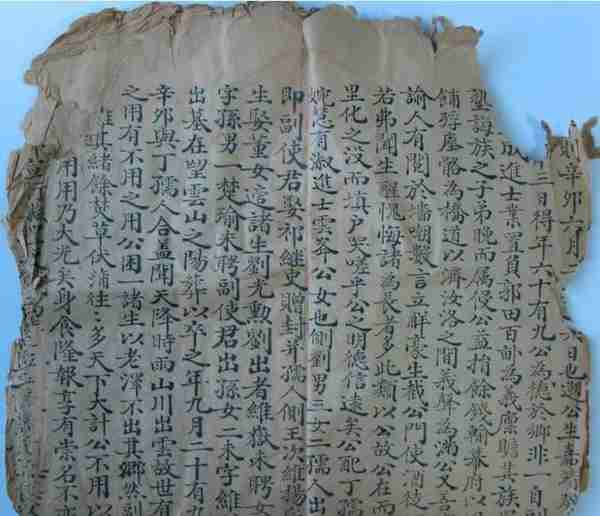 則辛卯六月二日也遡公生嘉靖癸
十三日得年六十有九公爲德於鄉非一自創
成進士業置負郭田百畝爲義廩贍其族
塾誨族之子弟晚而屬侵公益捐餘餞輸幕府以
餔殍瘞骼為橋道以濟汝洛之間義聲為滿公又善
諭人有鬩於墻哅數言立解豪生裁公門使酒徒
若弗聞生醒愧悔諸為長者多此類以公故公在而
里化之没而填户哭嗟乎公之明德信遠矣公配丁孺
婉慧有淑進士雲莽公女也側劉男三女二孺人出
即副使君娶祁繼史贈封并孺人側王次維揚
生娶董女適諸生劉光勲劉出者維嶽未聘女
字孫男一楚瑜未聘副使君出孫女二未字維
出墓在望雲山之陽葬以卒之年九月二十有
辛卯與丁孺人合蓋聞天降時雨山川出雲故世有
之用有不用之用公困一諸生以老澤不出其鄉然副
其緒餘焚草伏蒲往往多天下大計公不用以
用用乃大光矣身食隆報享有崇名不